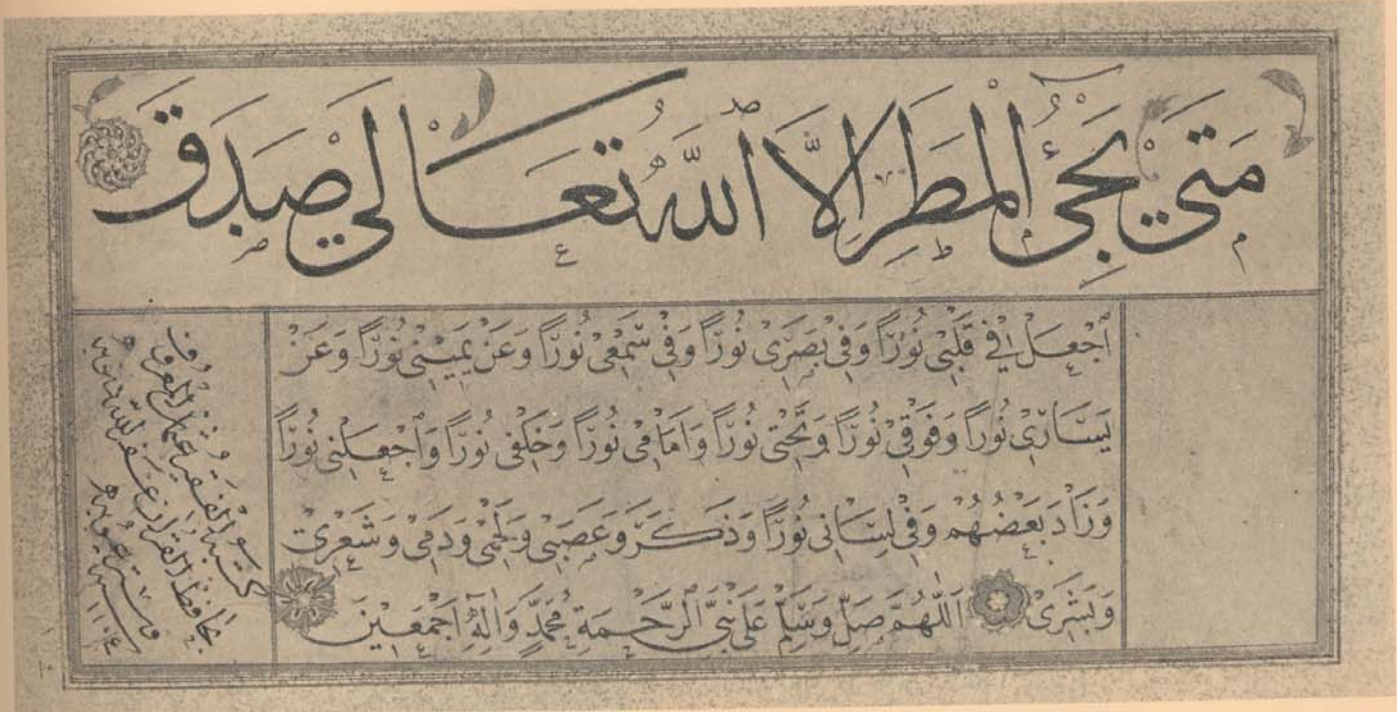 مَتى يَجِئُ الْمَطَرُ اِلَّا اللهُ تَعَالٰى صَدَقَ
اَجْعَلْ فِي قَلْبِي نُورًا وَفِي بَصَرِي نُورًا وَفِي سَمْعِي نُورًا وَعَنْ يَمِينِي نُورًا وَعَنْ
يَسَارِي نُورًا وَفَوْقِي نُورًا وَتَحْتِي نُورًا وَاَمَامِي نُورًا وَخَلْفِي نُورًا وَاجْعَلْنِي نُورًا
وَزَادَ بَعْضُهُمْ وَفِي لِسَانِي نُورًا وَذَكَرَ وَعَصَبِي وَلَحْمِي وَدَمِي وَشَعْرِي
وَبَشَرِي اَللّٰهُمَّ صَلِّ وَسَلِّمْ عَلَى نَبِيِّ الرَّحْمَةِ مُحَمَّدٍ وَاٰلِهِ اَجْمَعِينَ
الفقير عثمان المعروف
بحافظ القرآن غفر الله ذنوبه
وستر عيوبه ١١٠٤